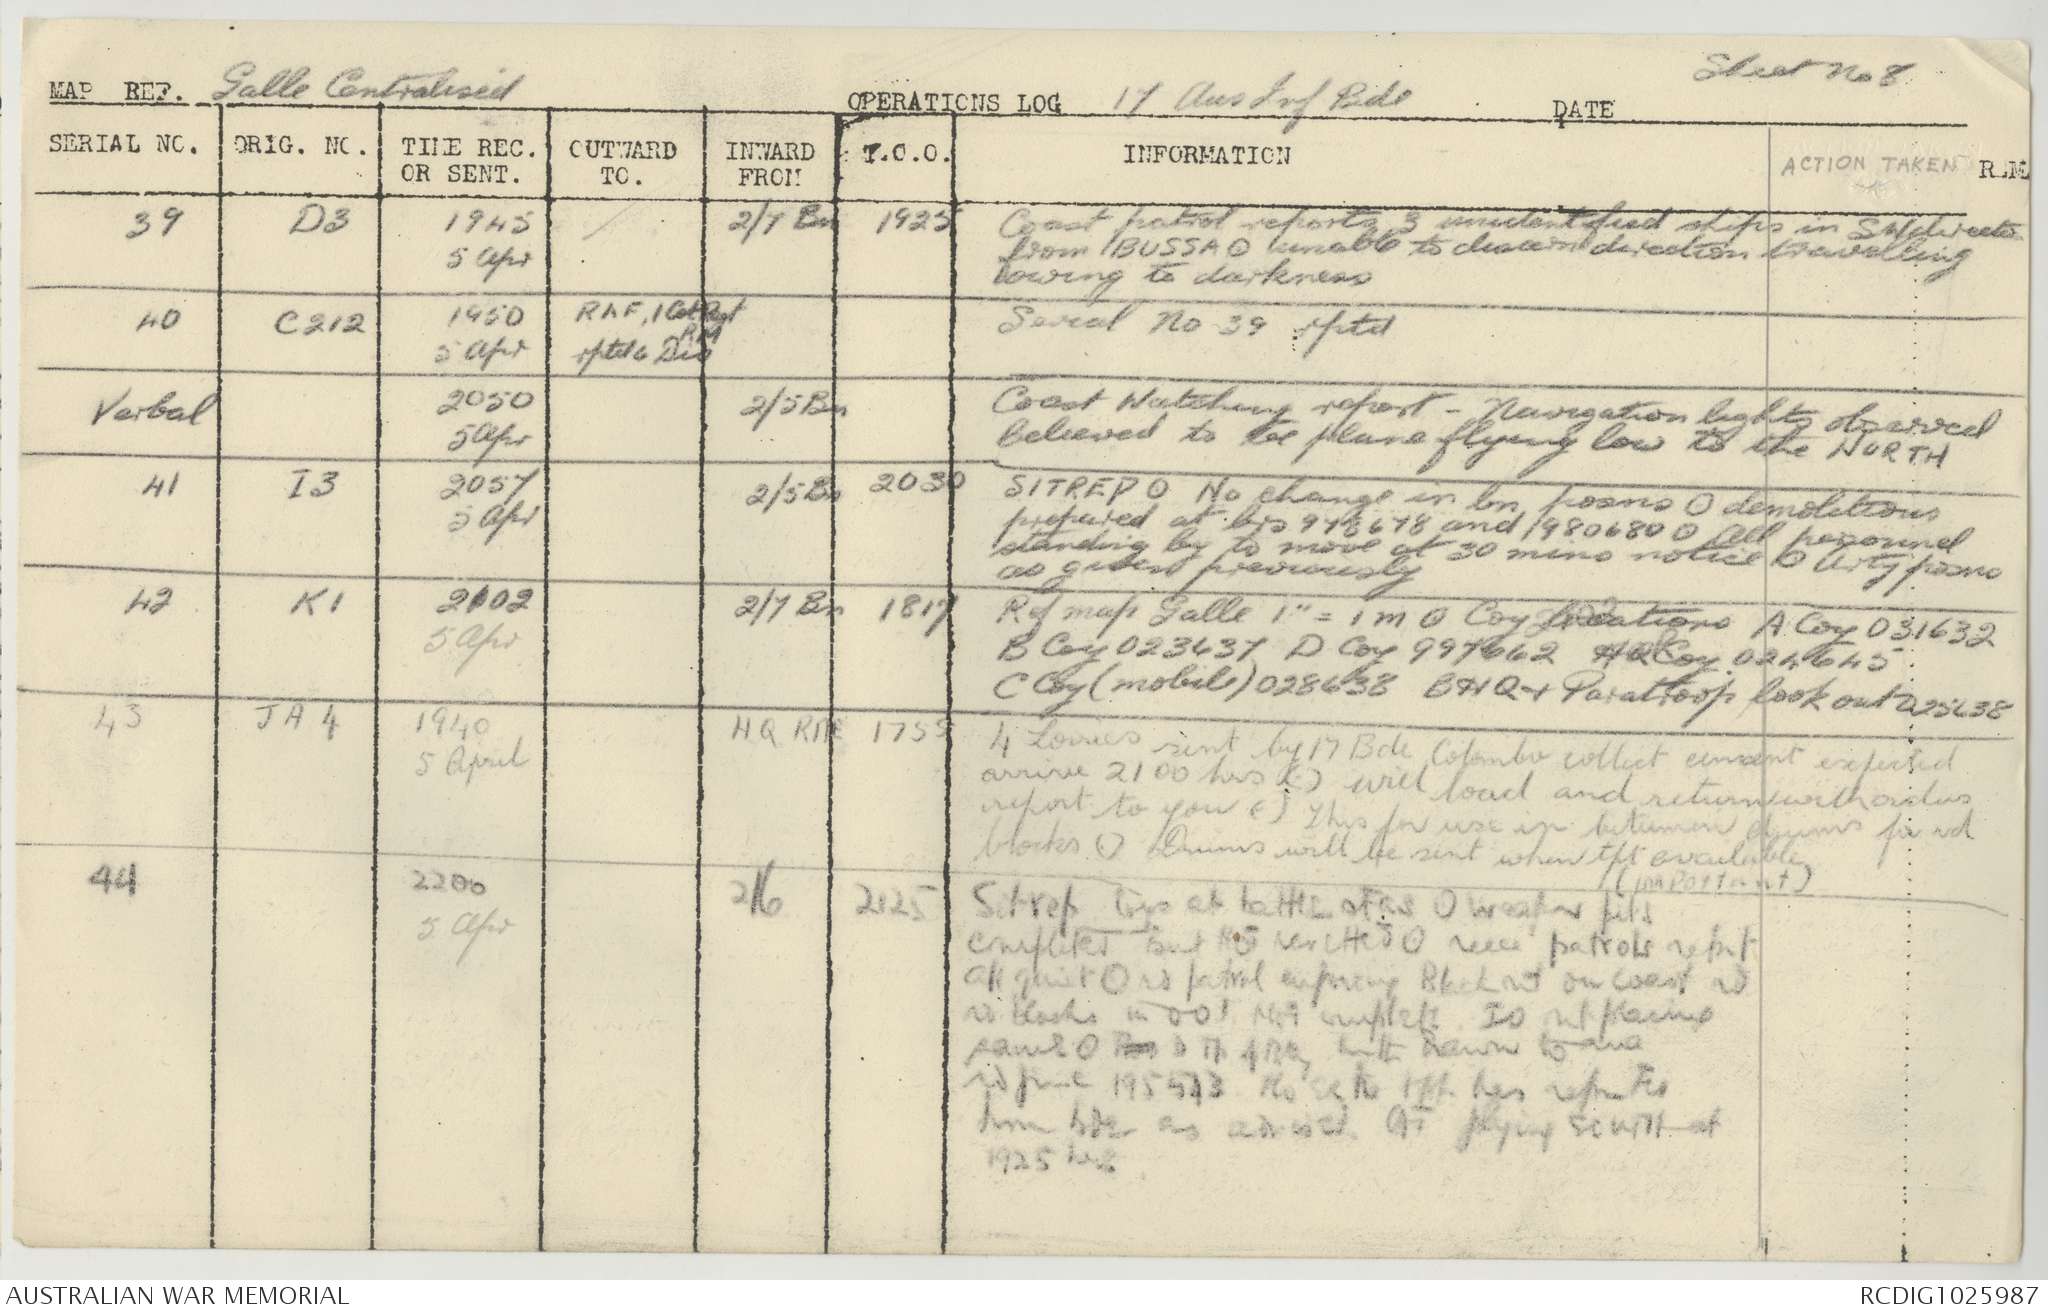 Sheet No 8
MAP REF. Galle Centralised OPERATIONS LOG 17 Aus Inf Bde DATE
SERIAL NO. ORIG. NO. TIME REC. OR SENT. OUTWARD TO. INWARD FROM T.O.O. INFORMATION ACTION TAKEN REM
39 D3 1945 5 Apr / 2/7 Bn 1925 Coast patrol reports 3 unidentified ships in SW directn
from BUSSA O unable to discern direction travelling
owing to darkness
40 C212 1950 5 Apr RAF, 1 Cst Rgt RM rptd 6 Div Serial No 39 rptd
Verbal 2050 5 Apr 2/5 Bn Coast Watching report - Navigation lights observed
believed to be plane flying low to the NORTH
41 I3 2057 5 Apr 2/5 Bn 2030 SITREP O No change in bn posns O demolitions
prepared at brs 973678 and 980680 O All personnel
standing by to move at 30 mins notice O Arty posns
as given previously
42 K1 2102 5 Apr 2/7 Bn 1817 Ref map Galle 1" = 1 m O Coy locations A Coy 031632
B Coy 023637 D Coy 997662 HQ Coy 024645
C Coy (mobile) 028638 BHQ + Paratroop look out 025638
43 JA4 1940 5 April HQ RAE 1755 4 Lorries sent by 17 Bde Colombo collect cement expected
arrive 2100 hrs () will load and return with orders
report to you () This for use in bitumen drums for rd
blocks () Drums will be sent when tpt available
(important)
44 2200 5 Apr 2/6 2125 Sitrep Coys at battle stns O weapon pits
completed but not revetted O recce patrols report
all quiet O rd patrol enforcing Blackout on coast rd
rd blocks in complete IO
same O
rd junc
from bde as advised. flying SOUTH at
1925 hrs
AUSTRALIAN WAR MEMORIAL RCDIG1025987